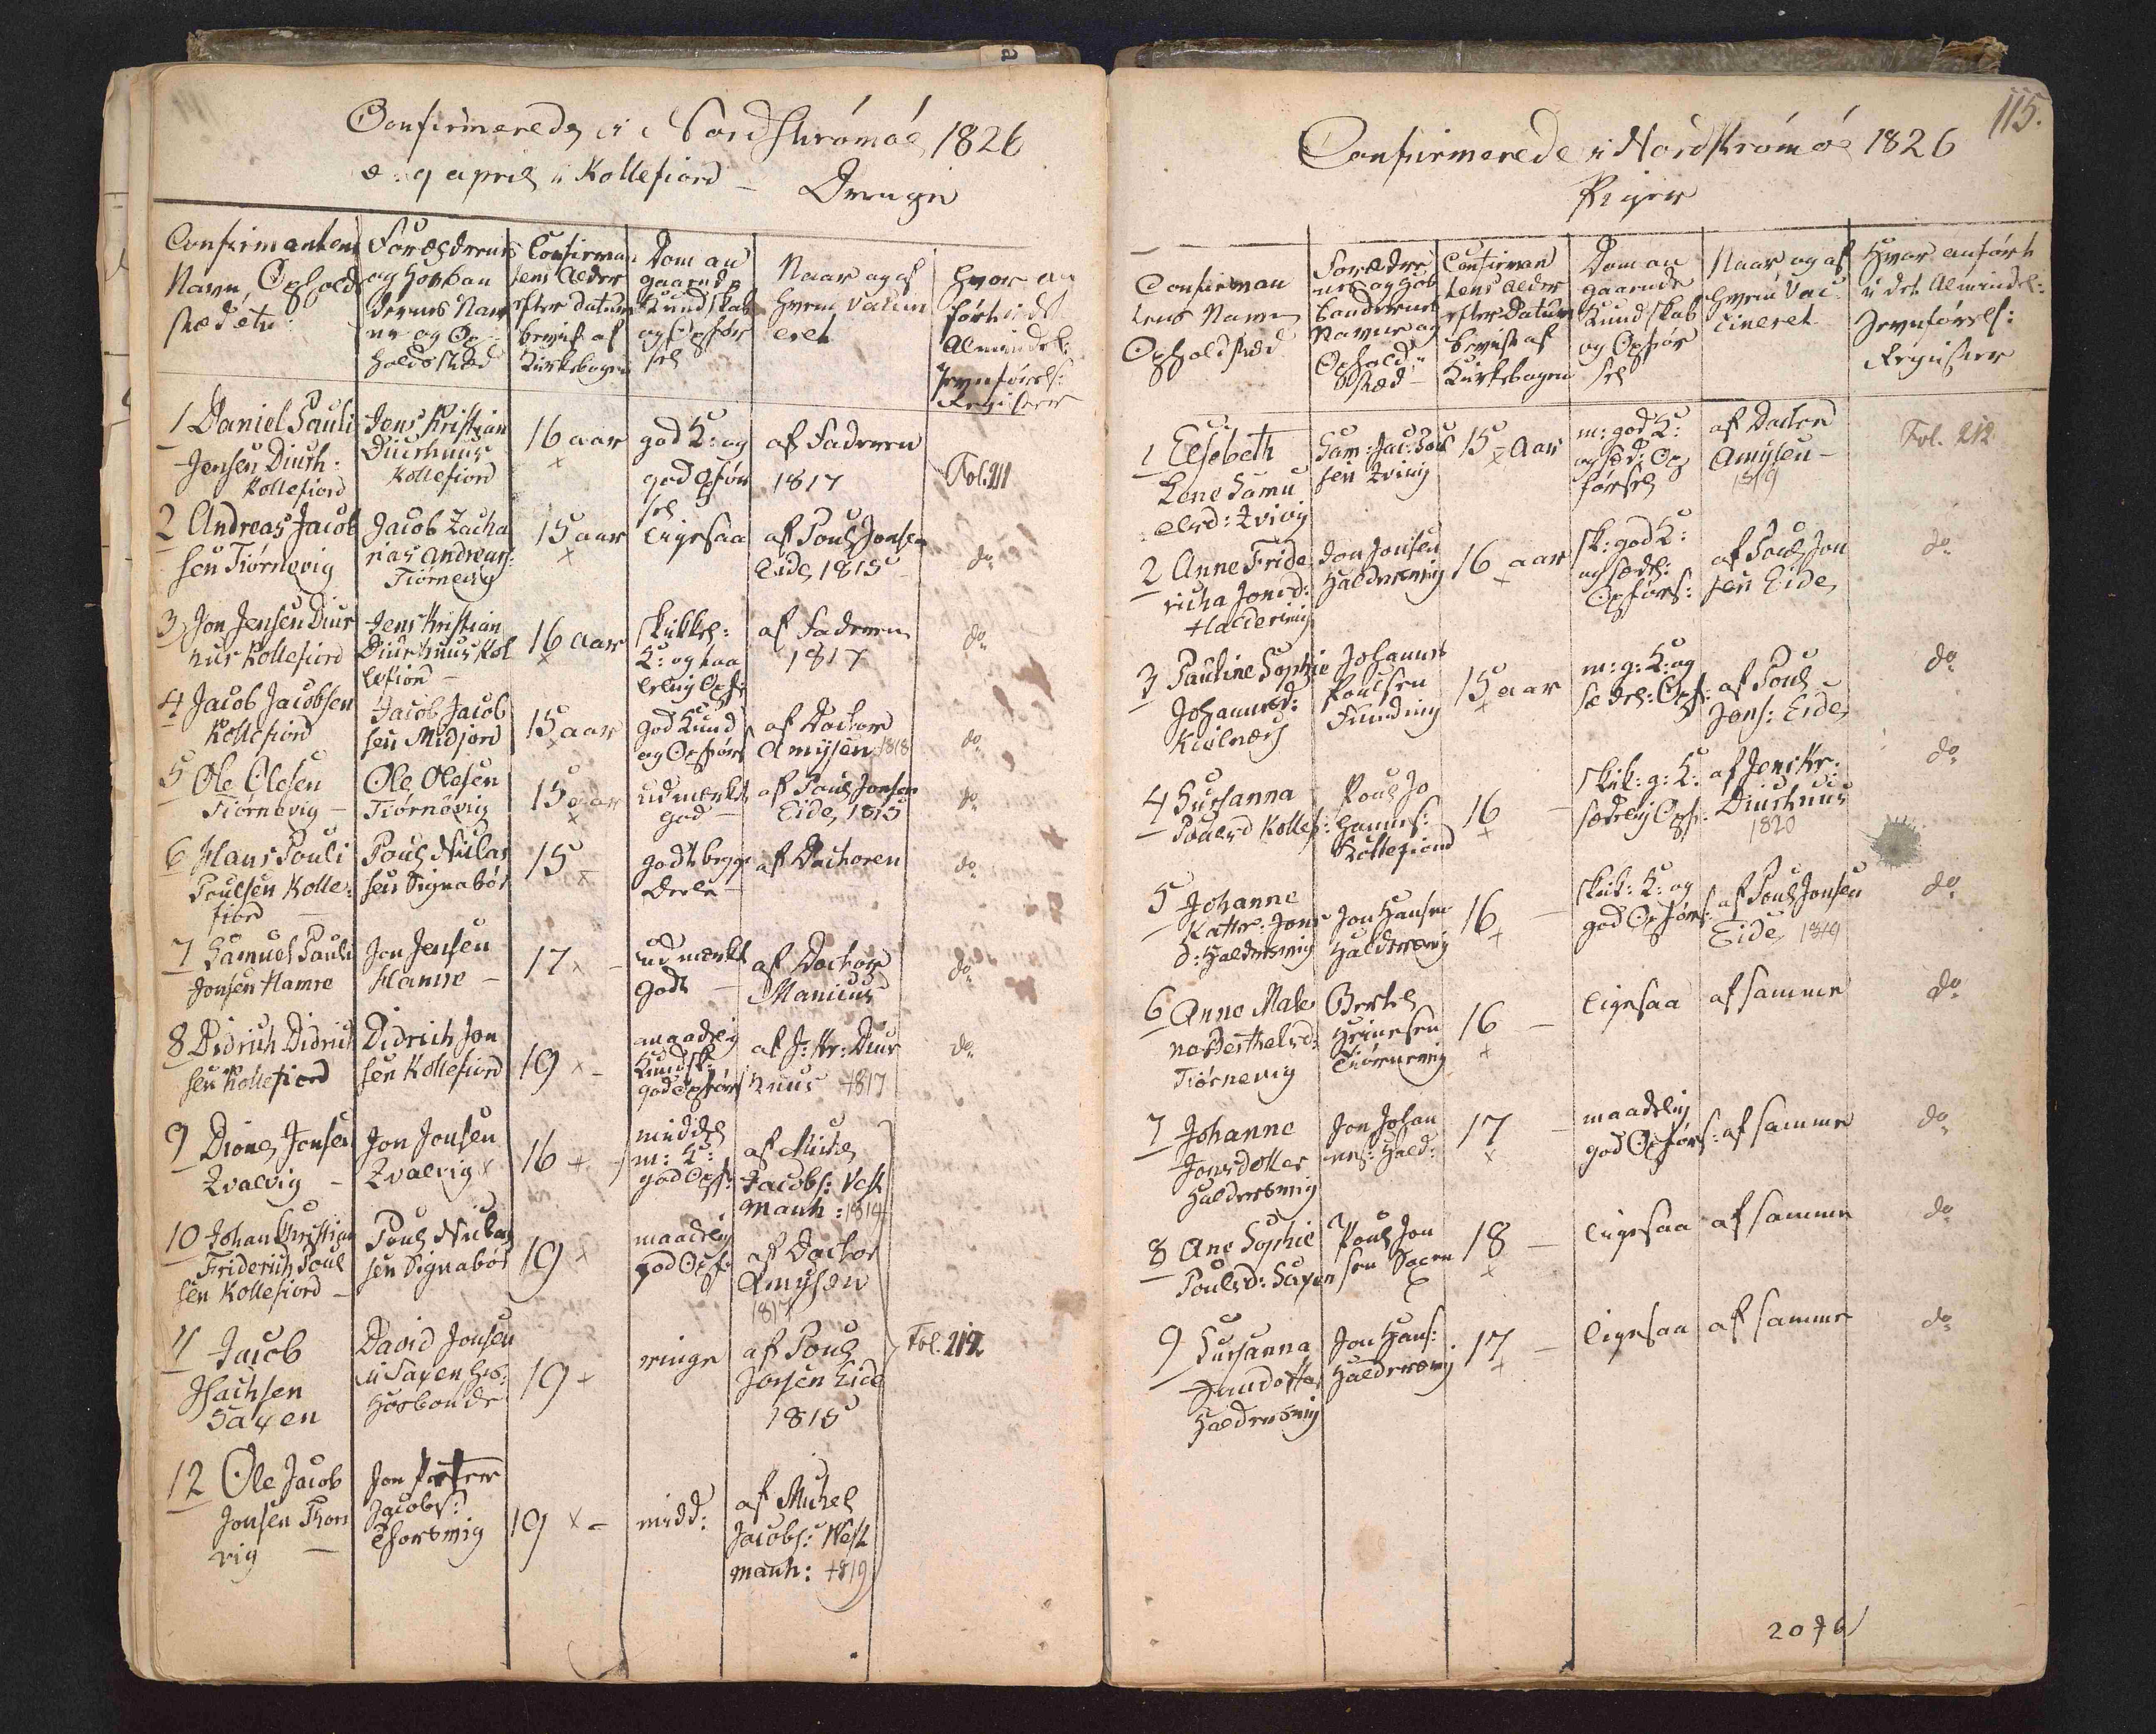 Confirmerede i Nordstrømøe 1826
d: 9 april i Kollefiord – Drenge
Confirmantens Navn, Opholds stæd etc:
Forældrenes og Hosbon dernes Nav ne og Op holdsstæd
Confirman tens Alder efter Datum beviist af Kirkebogen
Dom an gaaende Kundskab og Opfør sel
Naar og af hvem Vaccin eret
Hvor an ført i det Almindel: Jevnførels: Register
1 Daniel Pauli Jensen Diurh: Kollefiord
Jens Kristian Diurhuus Kollefiord
16 aar x
god K: og god Opfør sel
af Faderen 1817
Fol: 211
2 Andreas Jacob sen Tiørnevig
Jacob Zacha rias Andreas: Tiørnevig
15 aar x
ligesaa
af Poul Jonsen Eide, 1815
do
3 Jon Jensen Diur huus Kollefiord
Jens Kristian Diurhuus Kol lefiord –
16 aar x
skikkel: K: og taa lelig Opf:
af Faderen 1817
do
4 Jacob Jacobsen Kollefiord
Jacob Jacob sen Midjord
15 aar x
god Kund og Opførs
af Doctor Amysen 1818
do
5 Ole Olesen Tiørnevig –
Ole Olesen Tiørnevig
15 aar x
udmærket god –
af Poul Jonsen Eide, 1815
do
6 Hans Pouli Poulsen Kolle: fiord –
Poul Niclas sen Signabøe
15 x –
godt begge Deele –
af Doctoren
do
7 Samuel Pauli Jonsen Hamre
Jon Jensen Hamre –
17 x –
udmærket godt –
af Doctor Manicus
do
8 Didrich Didrich sen Kollefiord
Didrich Jon sen Kollefiord
19 x –
maadelig Kundsk: god Opførs
af J: Kr: Diur huus 1817
do
9 Diones Jonsen Zvalvig –
Jon Jonsen Zvalvig
16 x –
middel m: K: god Opf:
af Michel Jacobs: Vest manh: 1814
10 Johan Christian Friderich Poul sen Kollefiord –
Poul Niclas sen Signabøe
19 x
maadelig god Opf:
af Doctor Amysen 1817
11 Jacob Isachsen Saxen
David Jonsen i Saxen hs: Hosbonde
19 x
ringe
af Poul Jonsen Eide 1815
Fol: 212
12 Ole Jacob Jonsen Thors vig –
Jon Petter Jacobs: Thorsvig
19 x –
midd:
af Michel Jacobs: Vest manh: 1819
115.
Confirmerede i Nordstrømøe 1826
Piger
Confirman tens Navn Opholdsstæd
Forældre nes og Hos bondernes Navne og Ophold stæd –
Confirman tens Alder efter Datum beviist af Kirkebogen
Dom an gaaende Kundskab og Opfør sel
Naar og af hvem Vac cineret
Hvor anført i det Almindel: Jevnførels: Register
1 Elsebeth Lene Samu elsd: Zvivig
Sam: Jac: Poul sen Zviviig
15 – Aar x
m: god K: og sæd: Op førsel
af Doctor Amysen – 1819
Fol. 212
2 Anne Fride richa Jonsd: Haldersvig
Jon Jonsen Haldersvig
16 aar x
sk: god K: og sædel: Opførs:
af Poul Jon sen Eide,
do
3 Pauline Sophie Johannesd: Kiølnæs
Johannes Poulsen Funding
15 aar x
m: g: K: og sædel: Opf:
af Poul Jons: Eide,
do
4 Sussanna Poulsd Kollef:
Poul Jo hannes: Kollefiord
16 – x
skik: g: K: sædelig Opf:
af Jens Kr: Diurhuus 1820
do
5 Johanne Kattr: Jons d: Haldersvig
Jon Hansen Haldersvig
16 – x
skik: K: og god Opførs:
af Poul Jonsen Eide, 1819
do
6 Anne Male ne Berthelsd: Tiørnevig
Bertel Heinesen Tiørnevig
16 – x
ligesaa
af samme
do
7 Johanne Jonsdotter Haldersvig
Jon Johan nes: Hald:
17 – x
maadelig god Opførs:
af samme
do
8 Ane Sophie Poulsd: Saxen
Poul Jon sen Saxen
18 – x
ligesaa
af samme
do
9 Sussanna Jansdotter Haldersvig
Jon Hans: Haldersvig
17 – x
ligesaa
af samme
do
2076